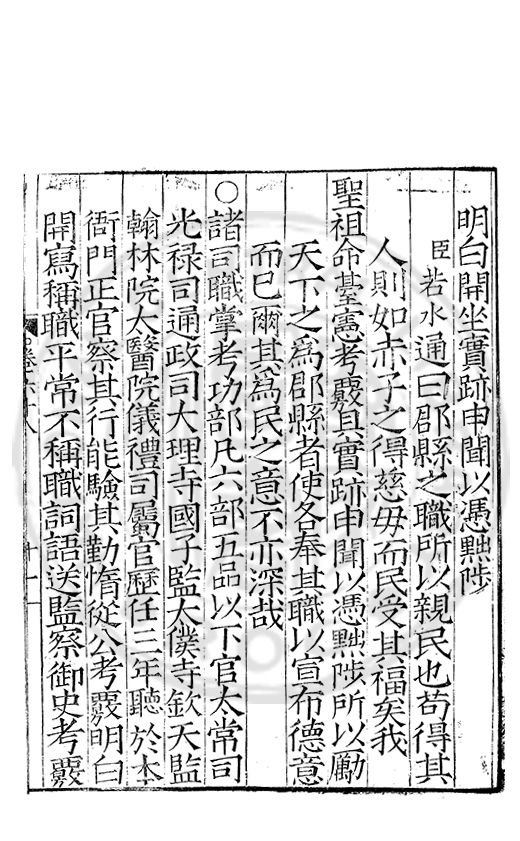 明白開坐實跡申聞以憑黜陟
臣若水通曰郡縣之職所以親民也苟得其
人則如赤子之得慈母而民受其福矣我
聖祖命臺憲考覈具實跡申聞以憑黜陟所以勵
天下之爲郡縣者使各奉其職以宣布德意
而已爾其爲民之意不亦深哉
○諸司職掌考功部凡六部五品以下官太常司
光禄司通政司大理寺國子監太僕寺欽天監
翰林院太醫院儀禮司屬官歷任三年聽於本
衙門正官察其行能驗其勤惰從公考覈明白
開寫稱職平常不稱職詞語送監察御史考覈
卷六十八
十一